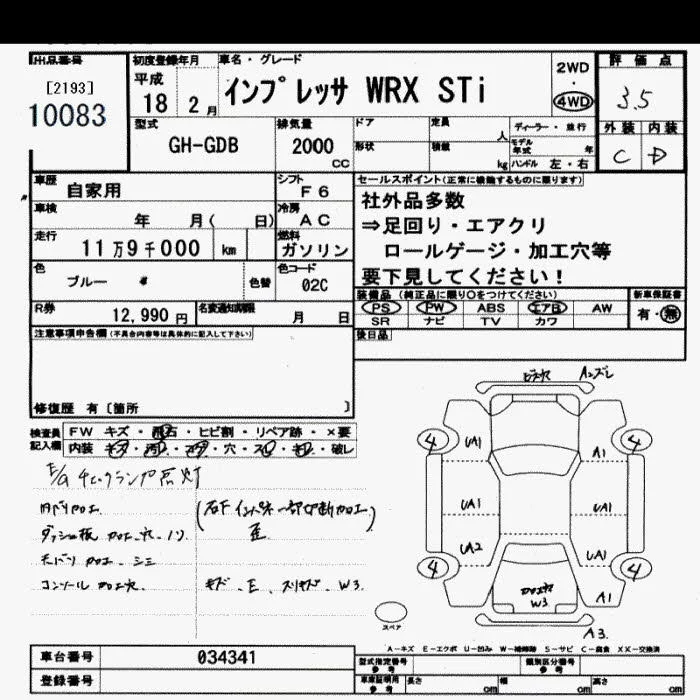 出品番号
[2193]
10083
初度登録年月
平成
18 2 月
車名・グレード
インプレッサ WRX STi
2WD
4WD
評価点
3.5
外装 内装
C D
型式
GH-GDB
排気量
2000
CC
ドア
形状
定員
人
積載
kg
ディーラー・並行
モデル年式 年
ハンドル 左・右
車歴
自家用
シフト
F6
車検
年 月( 日)
冷房
AC
走行
11万9千000 km
燃料
ガソリン
色
ブルー
色替
色コード
02C
R券
12,990 円
名変通知期限
月 日
セールスポイント(正常に機能するものに限ります)
社外品多数
⇒足回り・エアクリ
ロールゲージ・加工穴等
要下見してください!
装備品(純正品に限り○をつけてください)
PS PW ABS エアB AW
SR ナビ TV カワ
新車保証書
有・無
後日品
注意事項申告欄(不具合内容等は具体的に記入して下さい)
修復歴 有〔箇所 〕
検査員
記入欄
FW キズ・飛石・ヒビ割・リペア跡・×要
内装 キズ・汚れ・コゲ・穴・スレ・キレ・破レ
E/G チェックランプ点灯
内バリ加工
ダッシュ板 加工、穴、ノリ
天バリ 加工、シミ
コンソール 加工穴
キズ、E、スリキズ、W3
A
UA1
A1
UA1
UA1
UA2
UA1
A1
4
4
4
4
加工穴
W3
A3
スペア
A−キズ E−エクボ U−凹み W−補修跡 S−サビ C−腐食 XX−交換済
車台番号
034341
登録番号
型式指定番号
参考
類別区分番号
参考
車庫証明用
参考
長さ cm
幅 cm
高さ cm